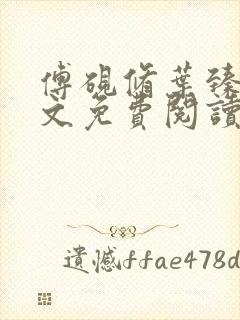 傅硯脩葉臻
文免費閱讀
遺憾ffae478d